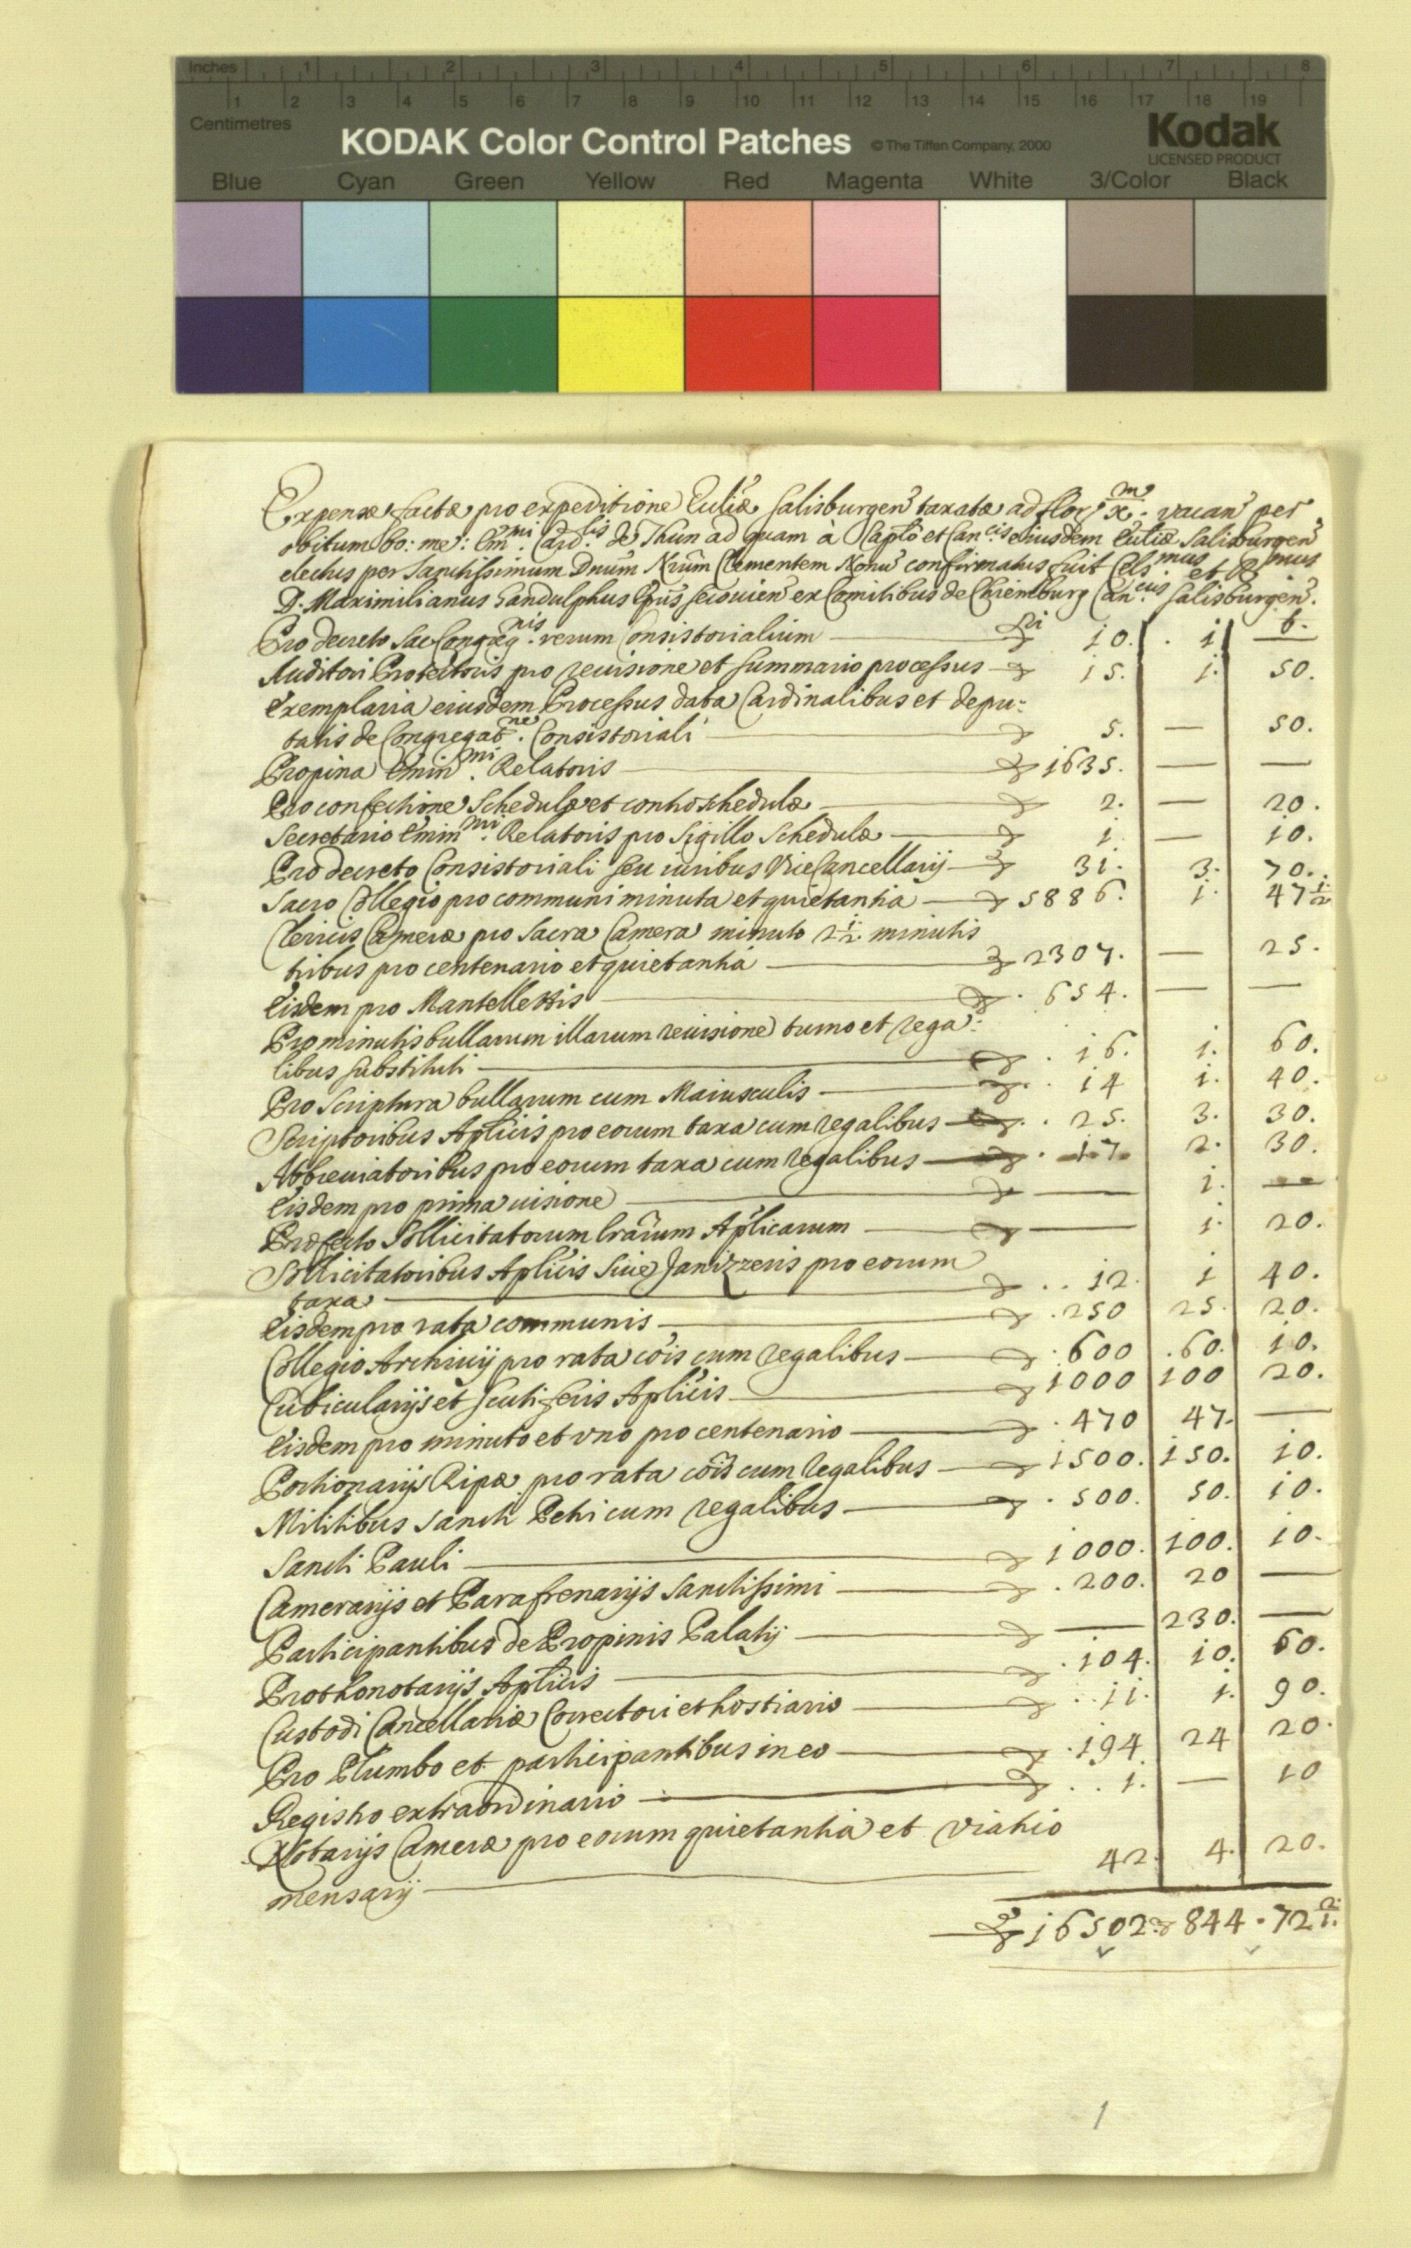 Inches 1 2 3 4 5 6 7 8
1 2 3 4 5 6 7 8 9 10 11 12 13 14 15 16 17 18 19
Centimetres
KODAK Color Control Patches © The Tiffen Company, 2000 Kodak
LICENSED PRODUCT
Blue Cyan Green Yellow Red Magenta White 3/Color Black
Expensæ factæ pro expeditione Eccliæ Salisburgen taxatæ ad flor x.m vacan per
obitum bo: me: Emmi Cardlis de Thun ad quam à Caplo et Can.cis eiusdem Eccliæ Salisburgen
electus per Sanctissimum Dnum Nrum Clementem Nonu confirmatus fuit Cels.mus et R.mus
D. Maximilianus Gandulphus Epus Secouien ex Comitibus de Chienburg Can.cus Salisburgen.
Pro decreto Sac Congreg.nis rerum Consistorialium 10. 1 6.
Auditori Protectoris pro reuisione et summario processus 15. 1. 50.
Exemplaria eiusdem Processus data Cardinalibus et depu:
tatis de Congregat.ne Consistoriali 5. — 50.
Propina Emin.mi Relatoris 1635. — —
Pro confectione Schedulæ et controschedulæ 2. — 20.
Secretario Emin.mi Relatoris pro Sigillo Schedulæ 1. — 10.
Pro decreto Consistoriali seu iuribus ViceCancellarij 31. 3. 70.
Sacro Collegio pro communi minuta et quietantia 5886. 1. 47 1/2
Clericis Cameræ pro Sacra Camera minuto 2 1/2 minutis
tribus pro centenario et quietantia 2307. — 25.
Eisdem pro Mantellettis 654. — —
Pro minutis bullarum illarum reuisione turno et rega:
libus substituti 16. 1. 60.
Pro Scriptura bullarum cum Maiusculis 14 1. 40.
Scriptoribus Aplicis pro eorum taxa cum regalibus 25. 3. 30.
Abbreuiatoribus pro eorum taxa cum regalibus 17. 2. 30.
Eisdem pro prima uisione — 1. —
Præfecto Sollicitatorum lrarum Aplicarum — 1. 20.
Sollicitatoribus Aplicis Siue Janizzeris pro eorum
taxa 12. 1 40.
Eisdem pro rata communis 250 25. 20.
Collegio Archiuij pro rata cois cum regalibus 600 60. 10.
Cubicularijs et Scutiferis Aplicis 1000 100 20.
Eisdem pro minuto et vno pro centenario 470 47. —
Portionarijs Ripæ pro rata cois cum regalibus 1500. 150. 10.
Militibus Sancti Petri cum regalibus 500. 50. 10.
Sancti Pauli 1000. 100. 10.
Camerarijs et Parafrenarijs Sanctissimi 200. 20 —
Participantibus de Propinis Palatij — 230. —
Prothonotarijs Aplicis 104. 10. 60.
Custodi Cancellariæ Correctori et hostiario 11. 1. 90.
Pro Plumbo et participantibus in eo 194 24 20.
Registro extraordinario 1. — 10
Notarijs Cameræ pro eorum quietantia et viatrio
mensarij 42. 4. 20.
16502 844 . 72 2/1.
1